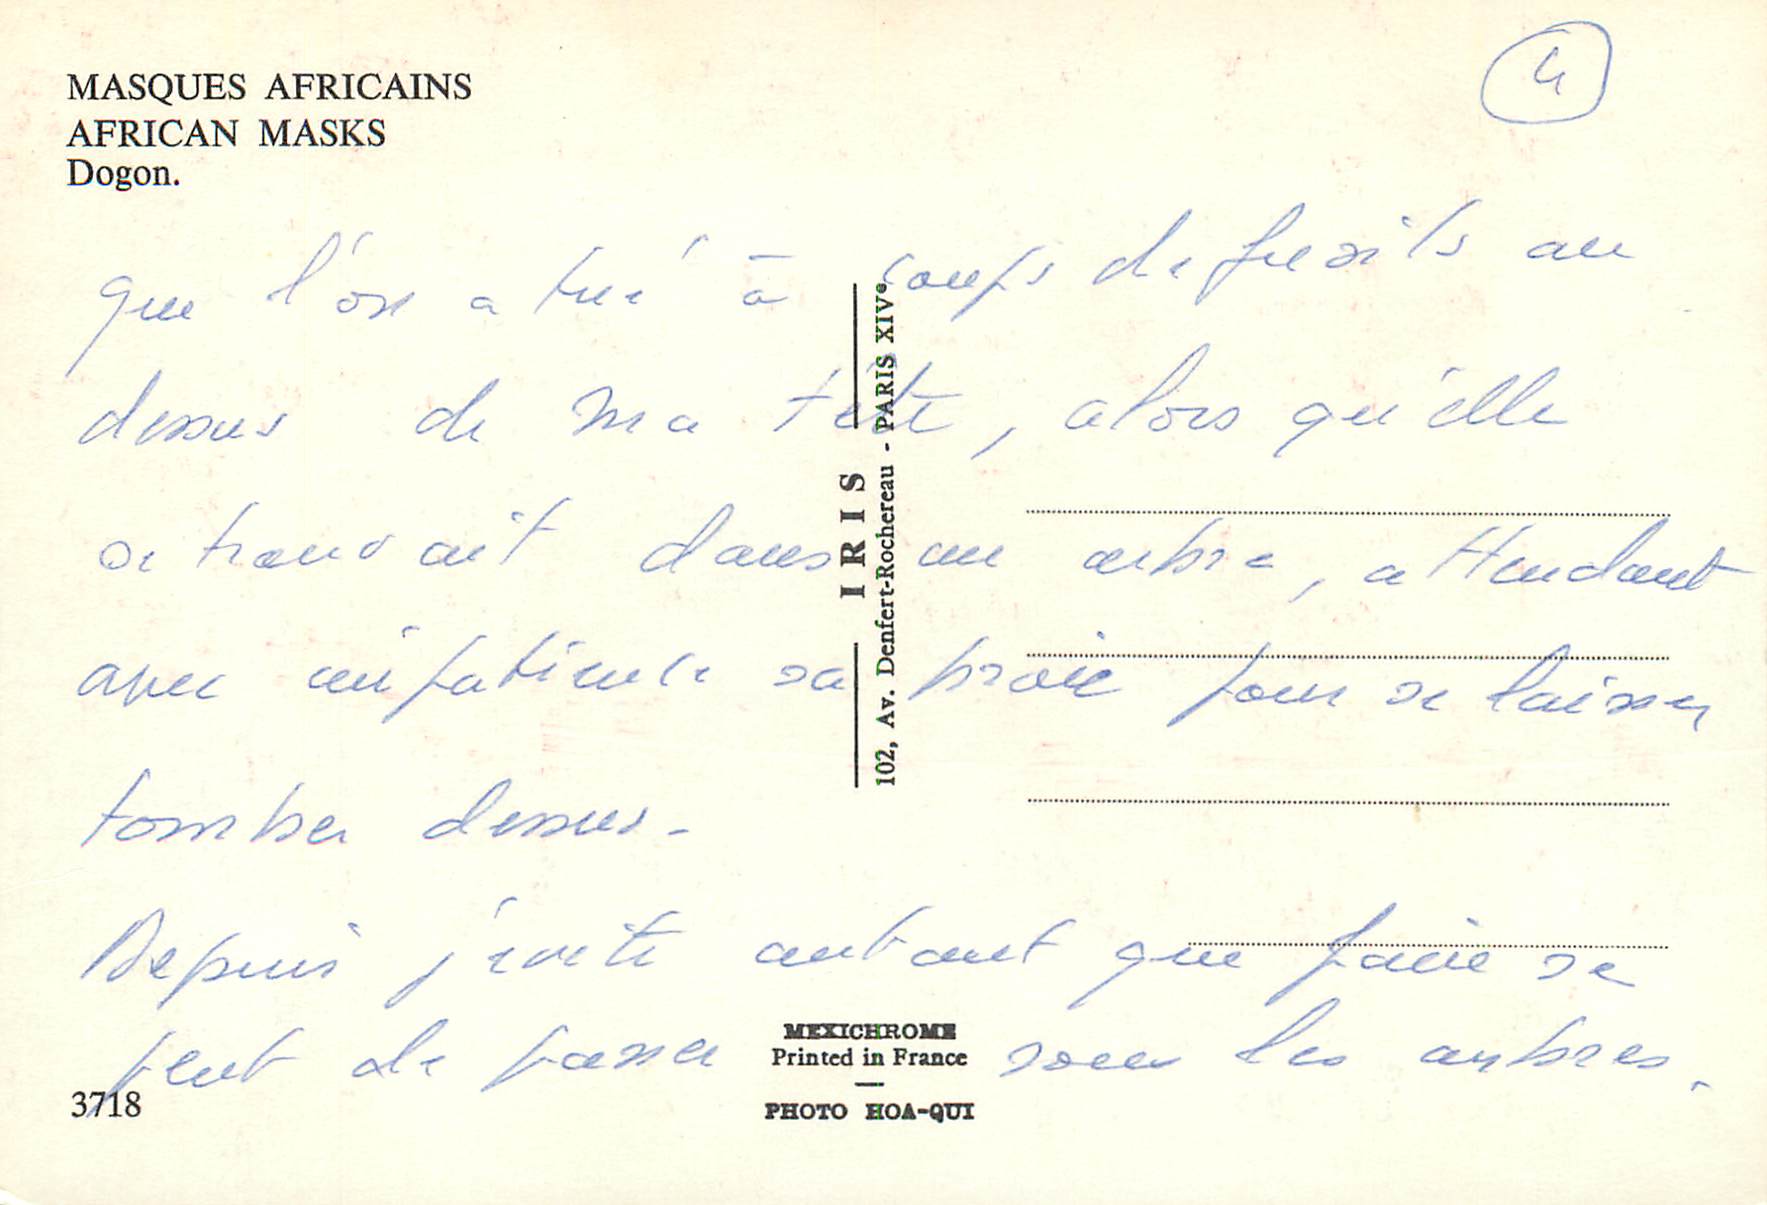 MASQUES AFRICAINS
AFRICAN MASKS
Dogon.
4
que l'on a tué à coups de fusils au
dessus de ma tête, alors qu'elle
se trouvait dans un arbre, attendant
avec impatience sa proie pour se laisser
tomber dessus.
Depuis j'évite autant que faire se
peut de passer sous les arbres.
IRIS
102, Av. Denfert-Rochereau - PARIS XIVe
MEXICHROME
Printed in France
PHOTO HOA-QUI
3718